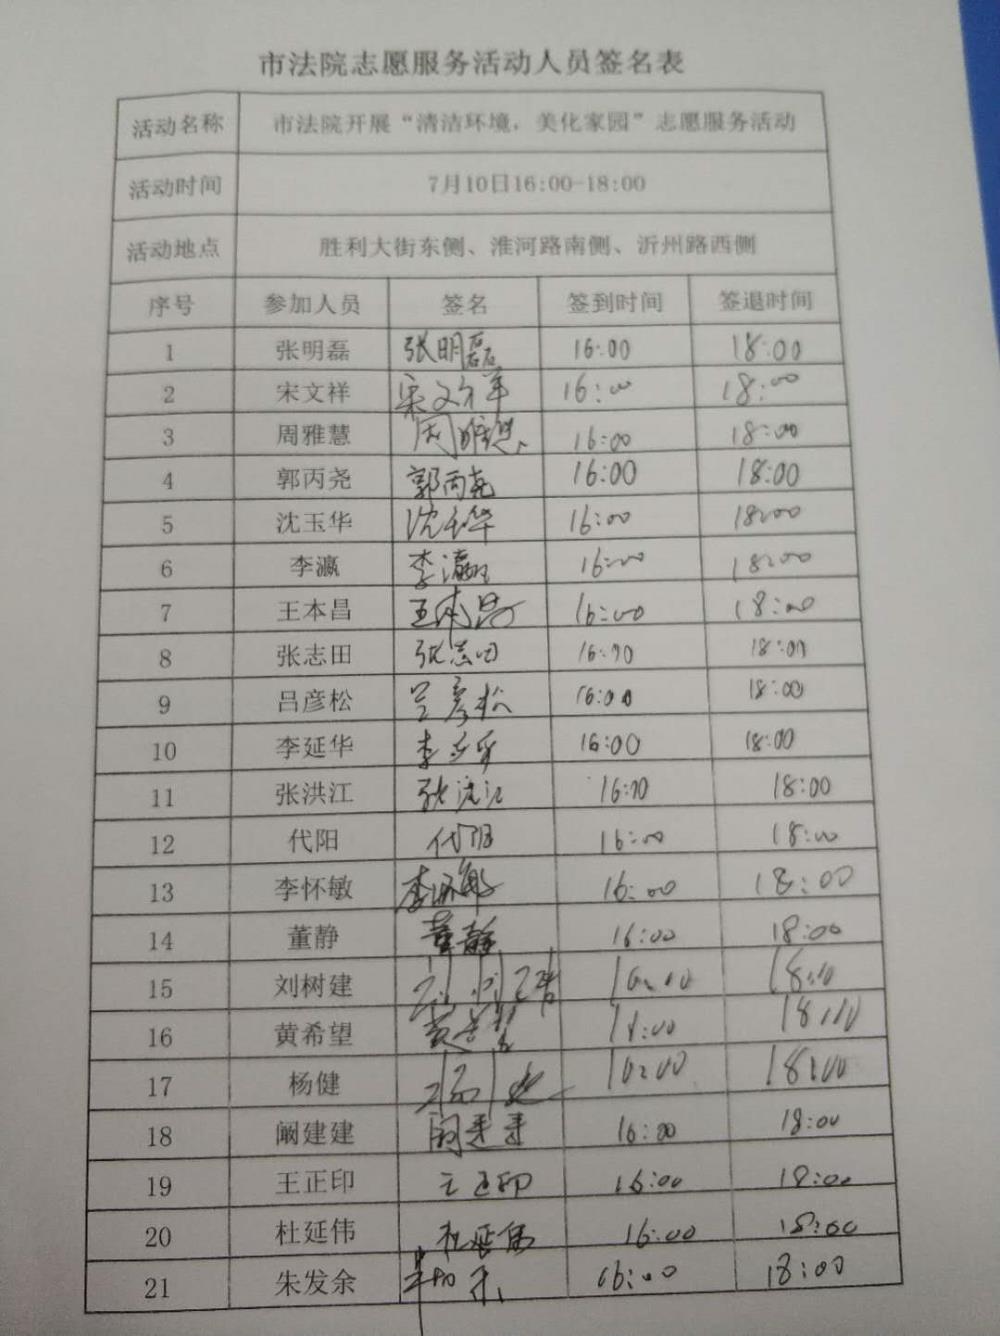 市法院志愿服务活动人员签名表
活动名称 市法院开展“清洁环境，美化家园”志愿服务活动
活动时间 7月10日16:00-18:00
活动地点 胜利大街东侧、淮河路南侧、沂州路西侧
序号 参加人员 签名 签到时间 签退时间
1 张明磊 张明磊 16:00 18:00
2 宋文祥 宋文祥 16:00 18:00
3 周雅慧 周雅慧 16:00 18:00
4 郭丙尧 郭丙尧 16:00 18:00
5 沈玉华 沈玉华 16:00 18:00
6 李瀛 李瀛 16:00 18:00
7 王本昌 王本昌 16:00 18:00
8 张志田 张志田 16:00 18:00
9 吕彦松 吕彦松 16:00 18:00
10 李延华 李延华 16:00 18:00
11 张洪江 张洪江 16:00 18:00
12 代阳 代阳 16:00 18:00
13 李怀敏 李怀敏 16:00 18:00
14 董静 董静 16:00 18:00
15 刘树建 16:00 18:00
16 黄希望 黄希望 16:00 18:00
17 杨健 杨健 16:00 18:00
18 阚建建 阚建建 16:00 18:00
19 王正印 王正印 16:00 18:00
20 杜延伟 杜延伟 16:00 18:00
21 朱发余 16:00 18:00